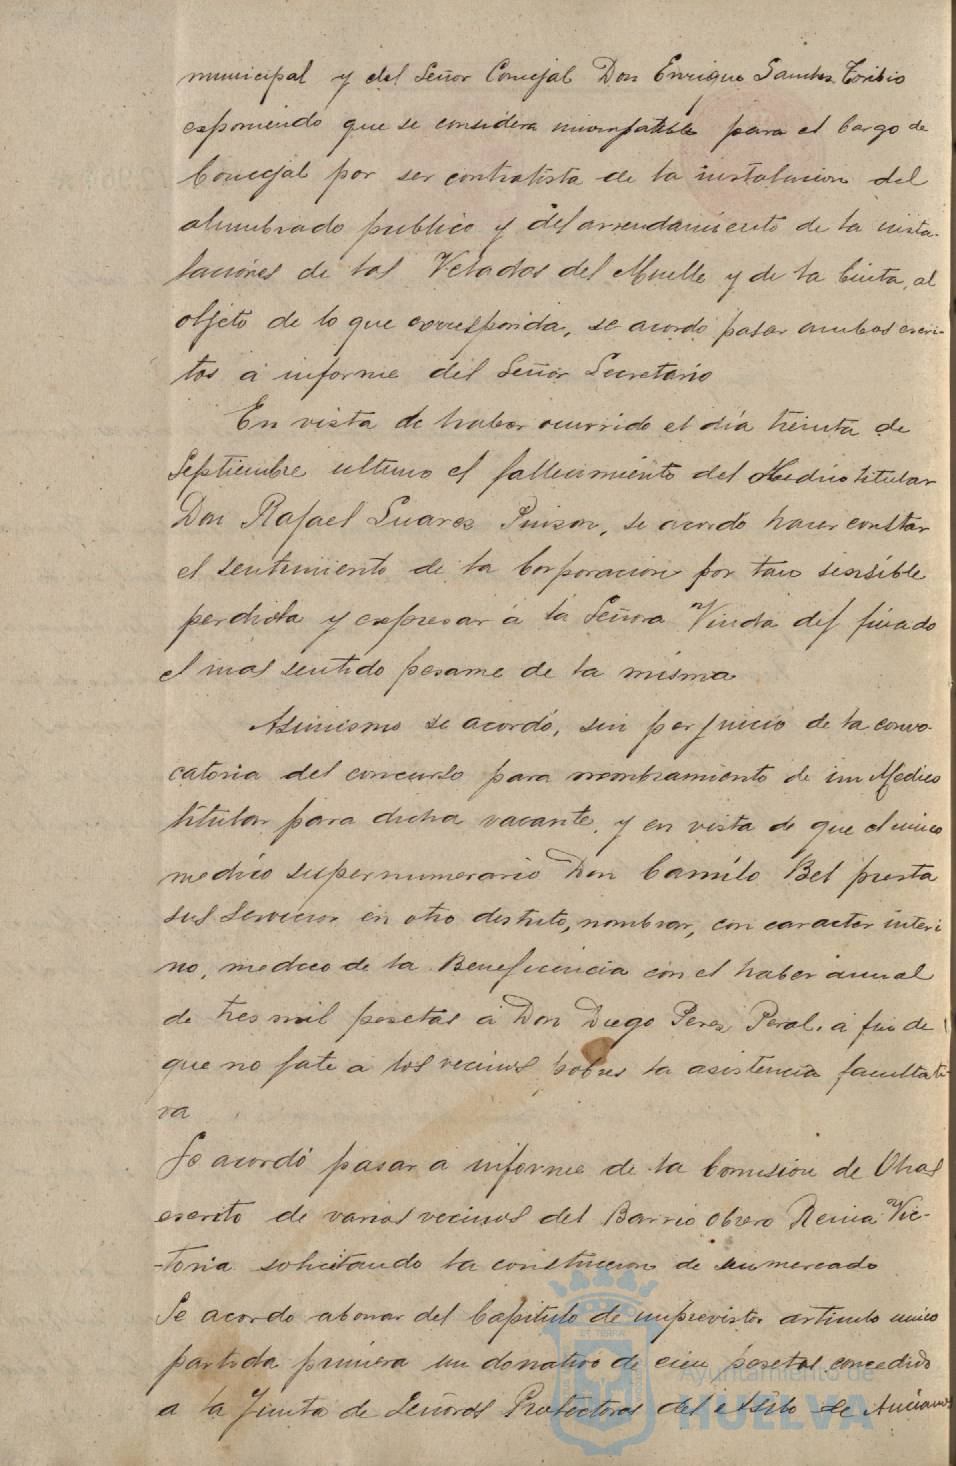 municipal y del Señor Concejal Don Enrique Sanchez Toribio
exponiendo que se considera incompatible para el Cargo de
Concejal por ser contratista de la instalacion del
alumbrado publico y del arrendamiento de la insta-
laciones de las Veladas del Muelle y de la Cinta, al
objeto de lo que corresponda, se acordo pasar ambos escri-
tos a informe del Señor Secretario
En vista de haber ocurrido el día treinta de
Septiembre ultimo el fallecimiento del Medico titular
Don Rafael Suarez Pinzon, se acordó hacer constar
el sentimiento de la Corporacion por tan sensible
perdida y expresar á la Señora Viuda del finado
el mas sentido pesame de la misma
Asimismo se acordó, sin perjuicio de la convo-
catoria del concurso para nombramiento de un Medico
titular para dicha vacante, y en vista de que el unico
medico supernumerario Don Camilo Bel presta
sus servicios en otro distrito, nombrar, con caracter interi
no, medico de la Beneficencia con el haber anual
de tres mil pesetas á Don Diego Perez Peral, a fin de
que no fate a los vecinos pobres la asistencia facultati-
va
Se acordó pasar a informe de la Comision de Obras
escrito de varios vecinos del Barrio Obrero Reina Vic-
-toria solicitando la construccion de un mercado
Se acordo abonar del Capitulo de imprevistos articulo unico
partida primera un donativo de cien pesetas concedido
a la Junta de Señoras Protectoras del Asilo de Ancianos
Ayuntamiento de
HUELVA